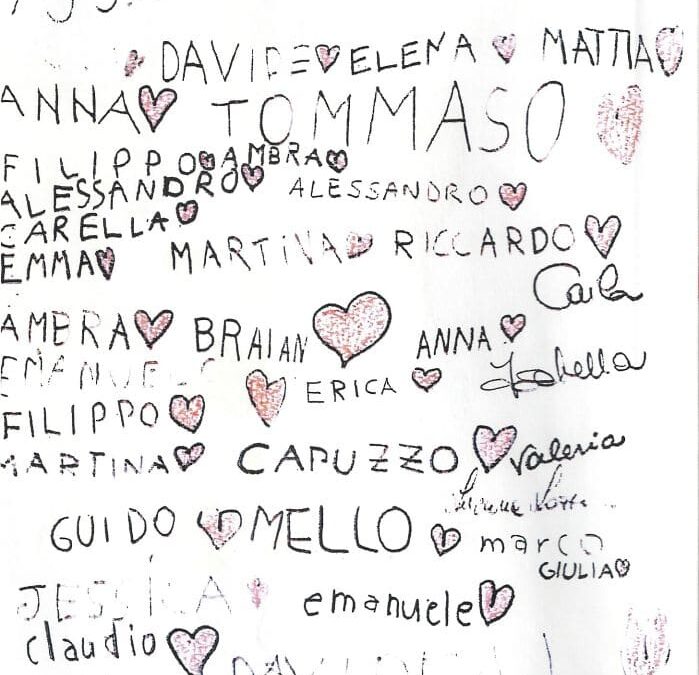 DAVIDE ELENA MATTIA
ANNA TOMMASO
FILIPPO AMBRA
ALESSANDRO ALESSANDRO
CARELLA
MARTINA RICCARDO
EMMA
Carla
AMERA BRAIAN ANNA
Isabella
EMANUELE ERICA
FILIPPO
MARTINA CAPUZZO Valeria
GUIDO MELLO marco
GIULIA
JESSICA emanuele
claudio